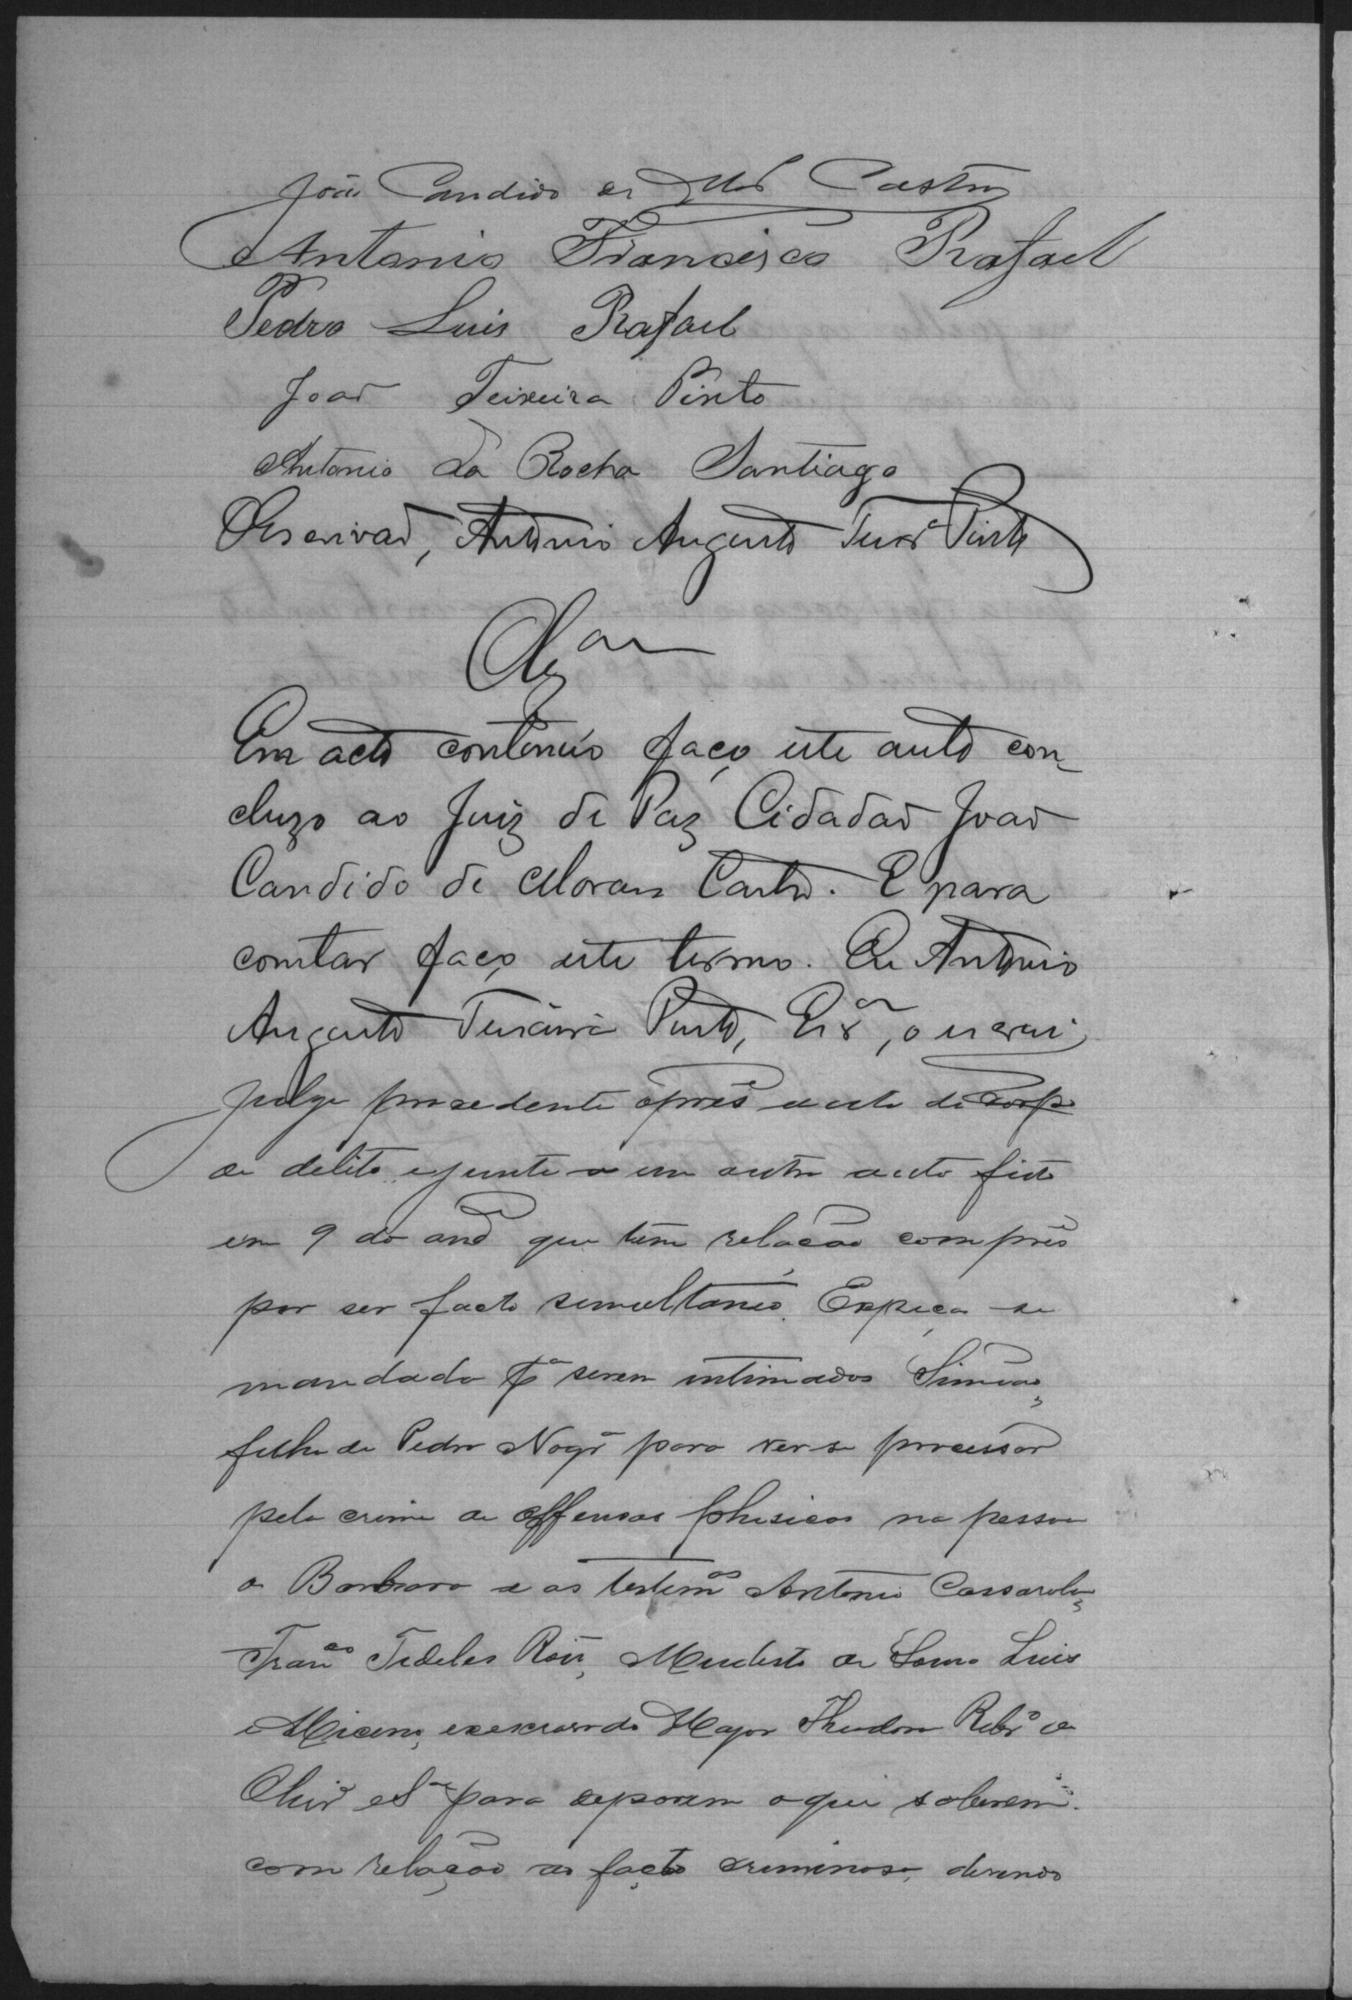 João Candido de Castro
Antonio Francisco Rafael
Pedro Luis Rafael
João Teixeira Pinto
Antonio da Rocha Santiago
Oescrivão, Antonio Augusto Teixrª Pinto
Clzam
Em acto continuo faço este auto con-
cluzo ao Juiz de Paz Cidadão João
Candido de Moraes Castro. E para
constar faço este termo. Eu Antonio
Augusto Teixeira Pinto, Esxam, o escrevi
Julgo procedente o presẽ auto de corpo
de delito e junte-se um outro auto feito
em 9 do andẽ que tem relação com presẽ
por ser facto simultanio. Expeça-se
mandado pª serem intimados Simião,
filho de Pedro Nogrª para ver-se processar
pelo crime de offensas phisicas na pessoa
de Barbara e as testemas Antonio Cassarola,
Franco Fideles Roiz, Modesto de Souza Luis
e Micena, exescravo do Major Theodoro Ribrº de
Olivrª e Sª para deporem o que soberem
com relação ao facto criminoso, devendo